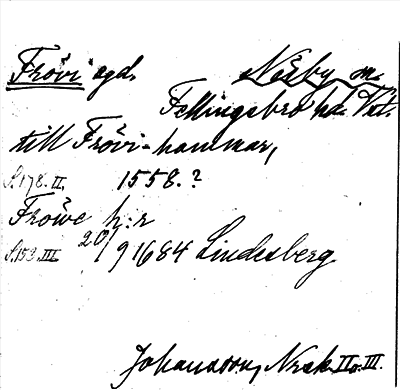 Frövi egd. Näsby sn.
Fellingsbro hd. Vstl.
till Frövi-hammar,
S. 178. II. 1558. ?
Fröwe h:r
S. 153. III. 20/9 1684 Lindesberg
Johansson, Norask. II o. III.